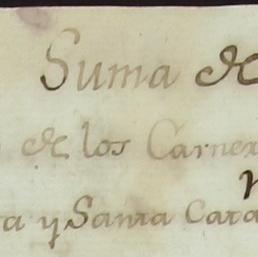 Suma de
de los Carner
ta y Santa Cata